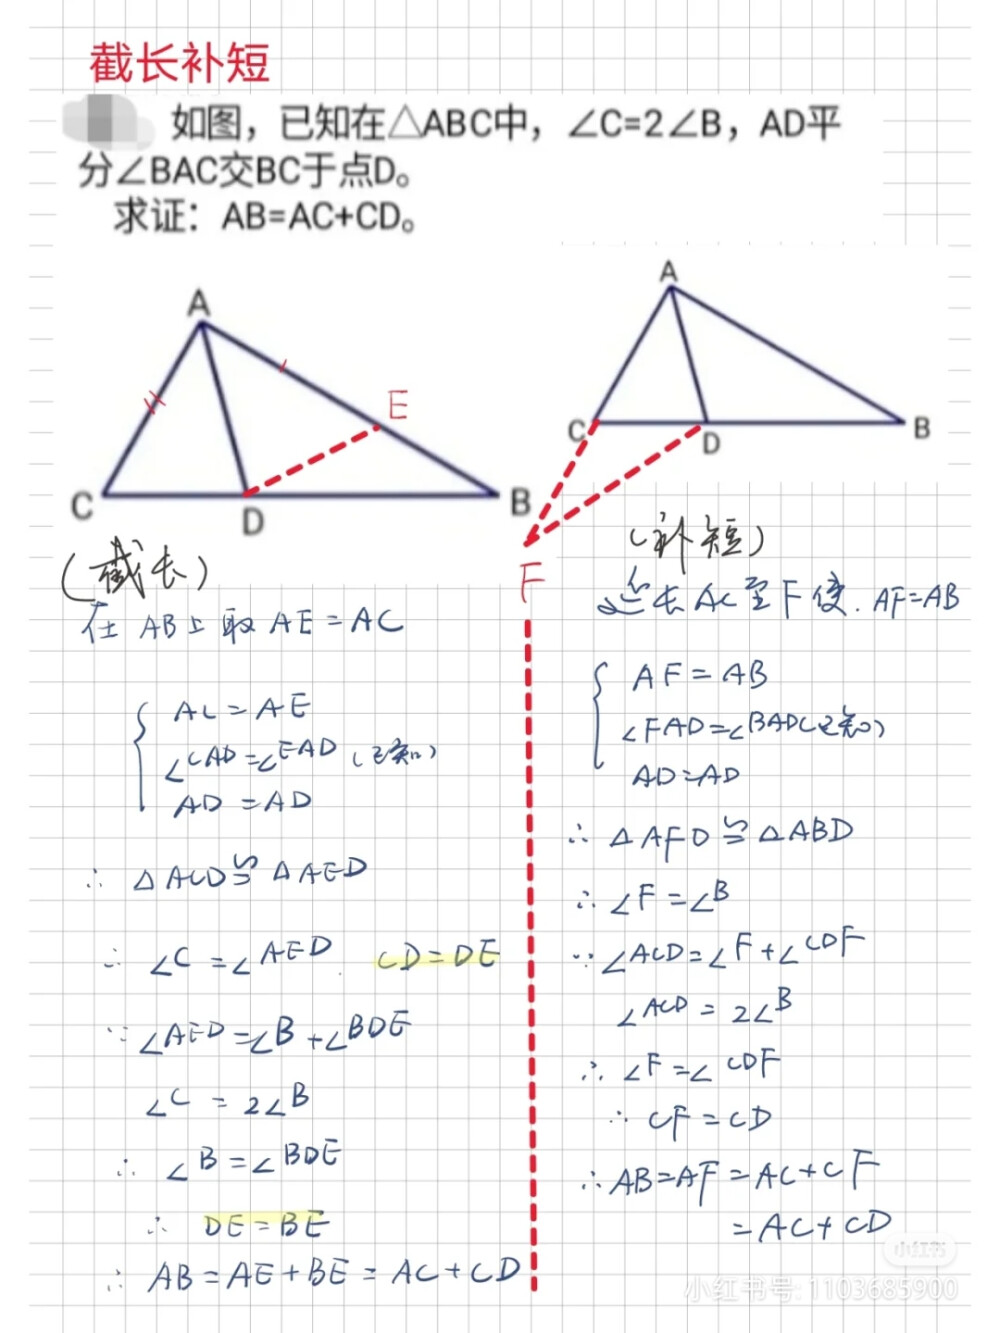 截长补短
如图，已知在△ABC中，∠C=2∠B，AD平
分∠BAC交BC于点D。
求证：AB=AC+CD。
A
E
C
D
B
A
C
D
B
F
(截长)
在AB上取AE=AC
AC=AE
∠CAD=∠EAD (已知)
AD=AD
∴ △ACD≌△AED
∴ ∠C=∠AED. CD=DE
∵ ∠AED=∠B+∠BDE
∠C=2∠B
∴ ∠B=∠BDE
∴ DE=BE
∴ AB=AE+BE=AC+CD
(补短)
延长AC至F使.AF=AB
AF=AB
∠FAD=∠BAD(已知)
AD=AD
∴ △AFD≌△ABD
∴ ∠F=∠B
∵ ∠ACD=∠F+∠CDF
∠ACD=2∠B
∴ ∠F=∠CDF
∴ CF=CD
∴ AB=AF=AC+CF
=AC+CD
小红书
小红书号: 1103685900